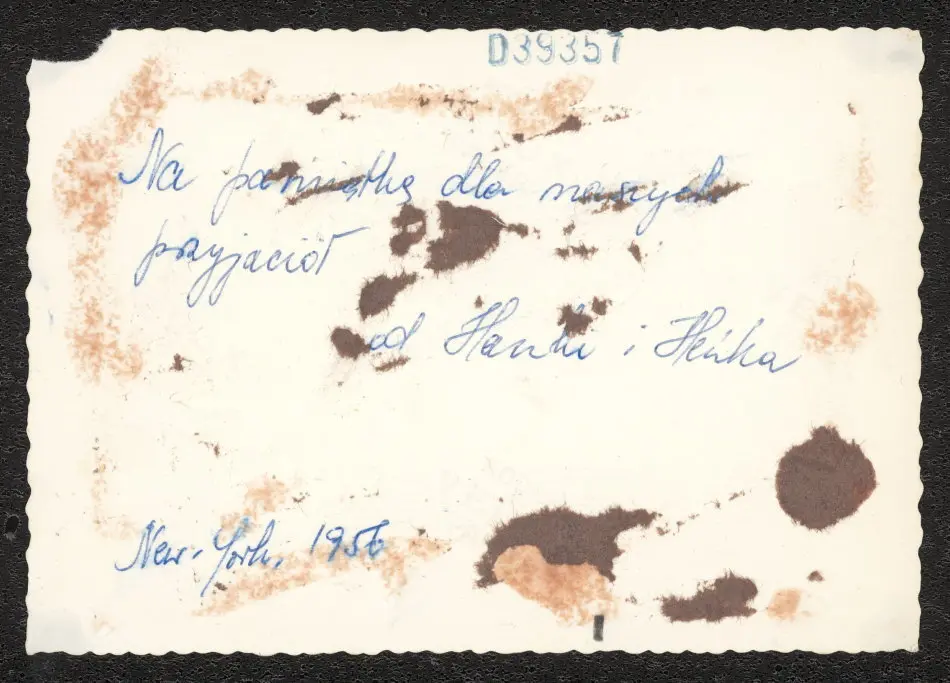 D39357
Na pamiątkę dla naszych
przyjaciół
od Hanki i Heńka
New-York, 1956